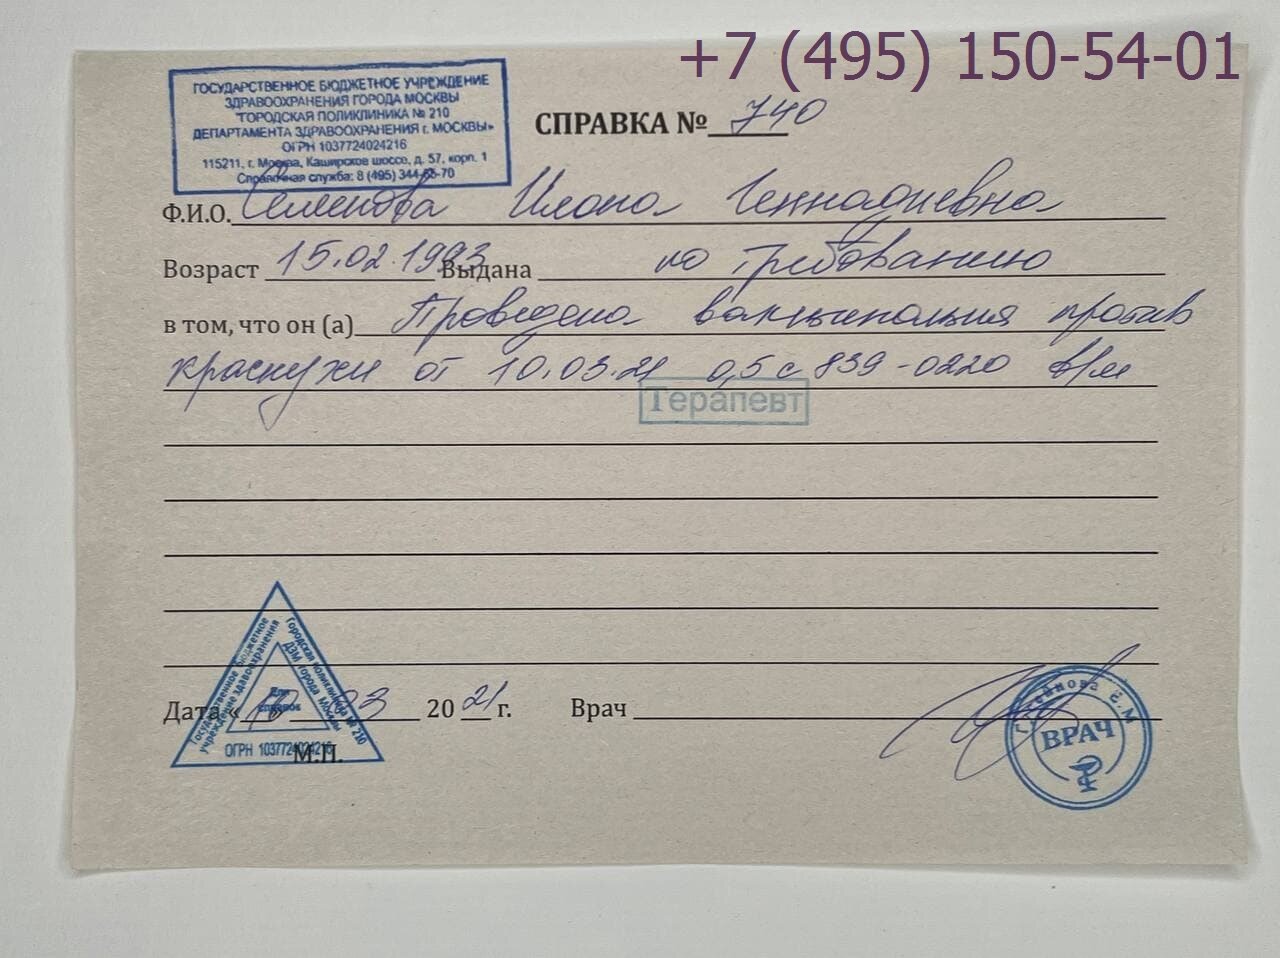 +7 (495) 150-54-01
ГОСУДАРСТВЕННОЕ БЮДЖЕТНОЕ УЧРЕЖДЕНИЕ
ЗДРАВООХРАНЕНИЯ ГОРОДА МОСКВЫ
"ГОРОДСКАЯ ПОЛИКЛИНИКА № 210
ДЕПАРТАМЕНТА ЗДРАВООХРАНЕНИЯ г. МОСКВЫ»
ОГРН 1037724024216
115211, г. Москва, Каширское шоссе, д. 57, корп. 1
Справочная служба: 8 (495) 344-66-70
СПРАВКА № 740
Ф.И.О. Семенова Илона Геннадиевна
Возраст 15.02.1993 Выдана по требованию
в том, что он (а) Проведена вакцинация против
краснухи от 10.03.21 0,5 с 839-0220 в/м
Терапевт
Государственное бюджетное
учреждение здравоохранения
Городская поликлиника № 210
ДЗМ города Москвы
Для
справок
ОГРН 1037724024216
Дата « 10 03 20 21 г. Врач
М.П.
Е.М
ВРАЧ